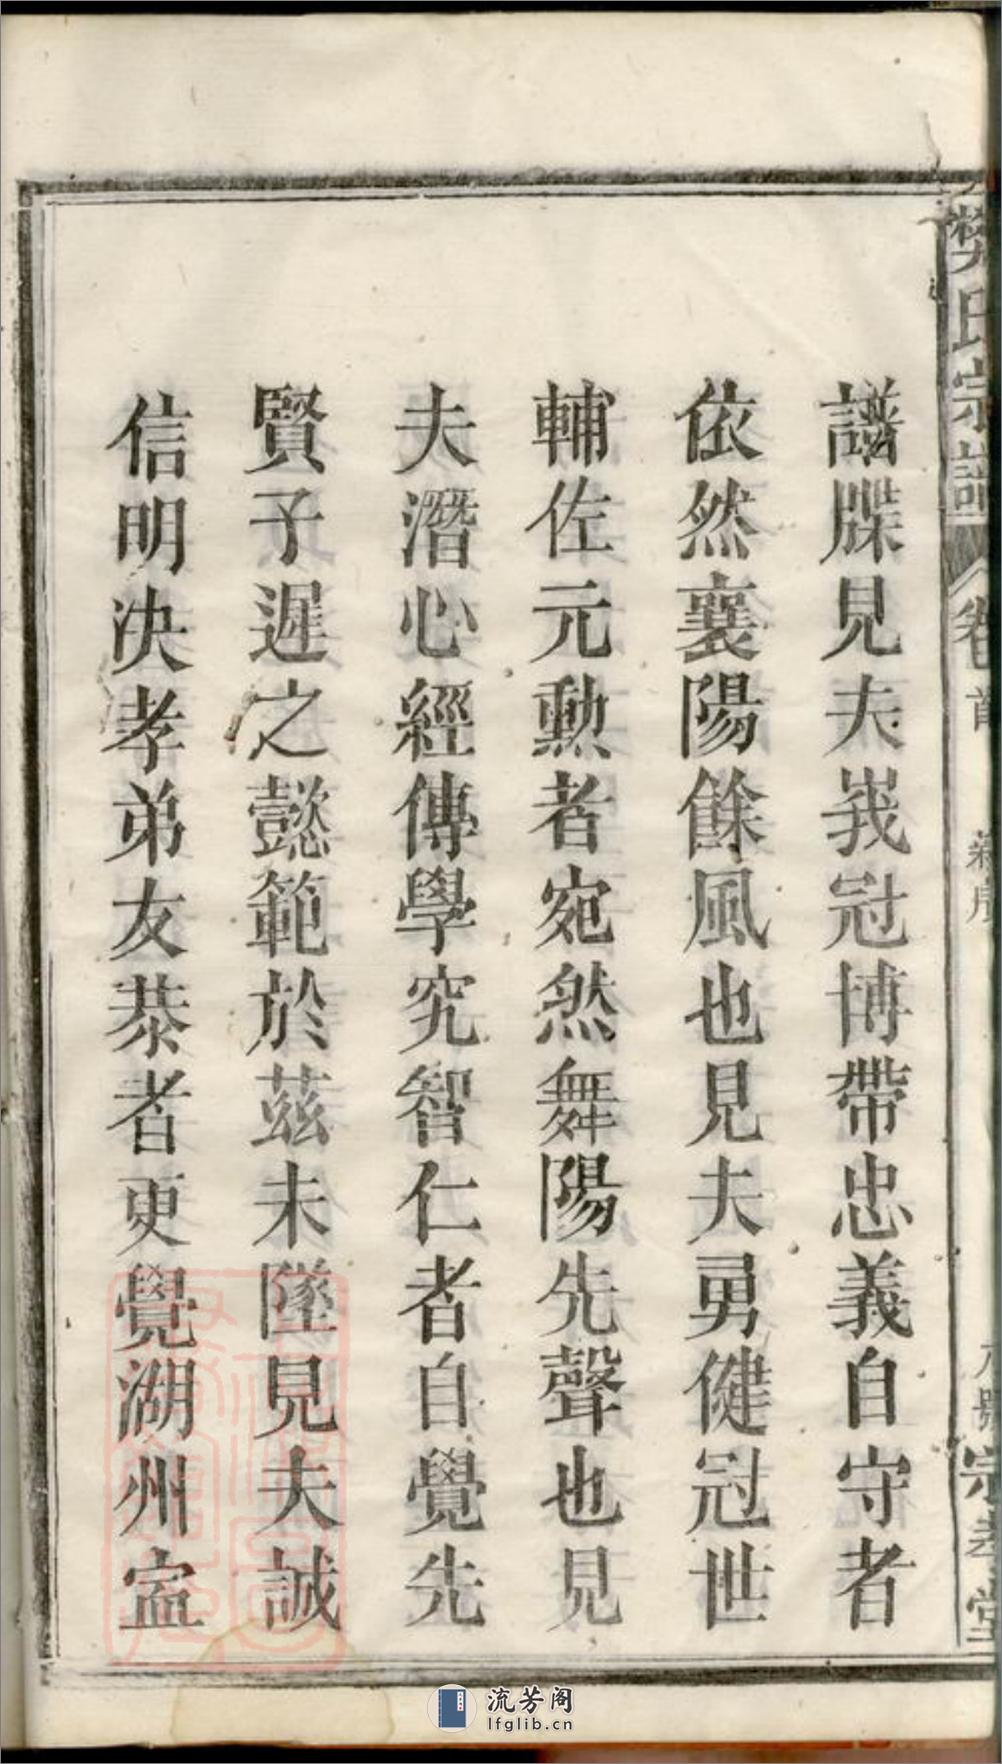 樊氏宗譜
卷首
新序
八號
宗孝堂
譜牒見夫峩冠博帶忠義自守者
依然襄陽餘風也見夫勇健冠世
輔佐元勳者宛然舞陽先聲也見
夫潛心經傳學究智仁者自覺先
賢子遲之懿範於茲未墜見夫誠
信明決孝弟友恭者更覺湖州宣
流芳阁
lfglib.cn